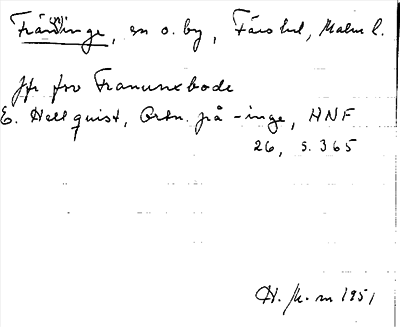 Frän(n)inge, sn o. by, Färs hd, Malm l.
Jfr fvo Franunxbode
E. Hellquist, Ortn. på -inge, HNF
26, s. 365
H. K-m 1951